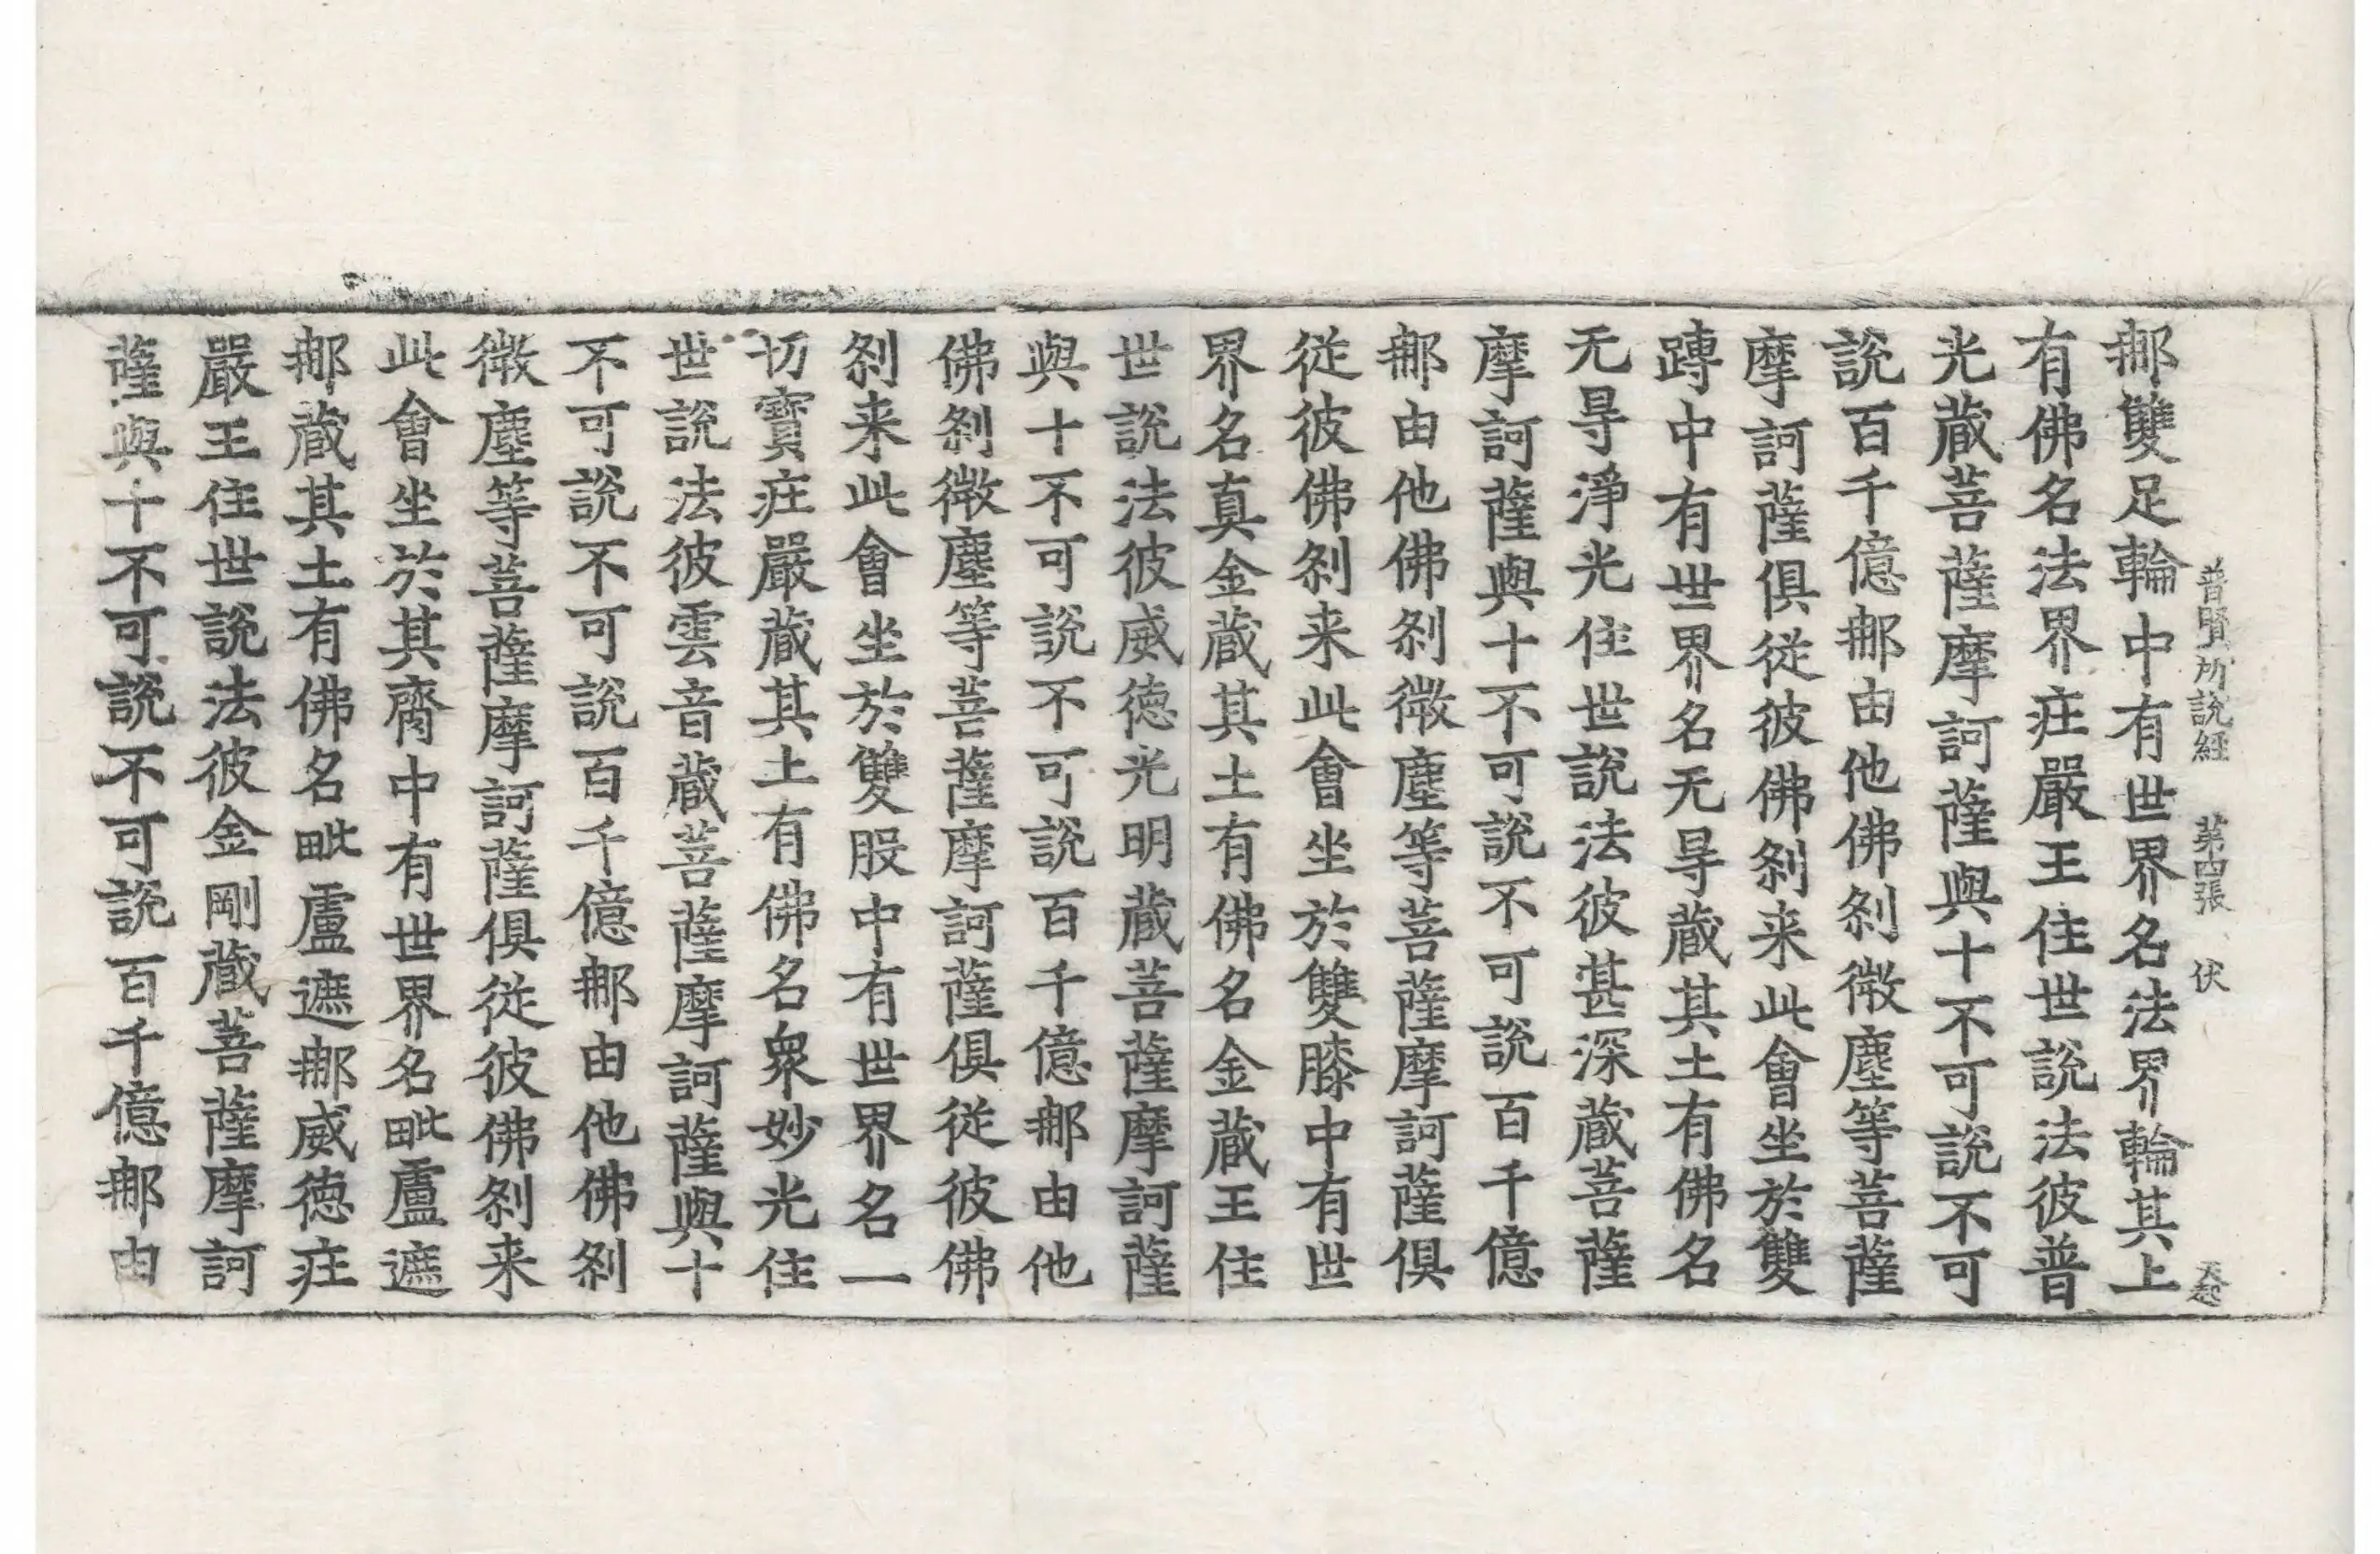 普賢所說經 第四張 伏
那雙足輪中有世界名法界輪其上
有佛名法界疘嚴王住世說法彼普
光藏菩薩摩訶薩與十不可說不可
說百千億那由他佛剎微塵等菩薩
摩訶薩俱從彼佛剎来此會坐於雙
蹲中有世界名无㝵藏其土有佛名
无㝵淨光住世說法彼甚深藏菩薩
摩訶薩與十不可說不可說百千億
那由他佛剎微塵等菩薩摩訶薩俱
從彼佛剎来此會坐於雙膝中有世
界名真金藏其土有佛名金藏王住
世說法彼威德光明藏菩薩摩訶薩
與十不可說不可說百千億那由他
佛剎微塵等菩薩摩訶薩俱從彼佛
剎来此會坐於雙股中有世界名一
切寶疘嚴藏其上有佛名衆妙光住
世說法彼雲音藏菩薩摩訶薩與十
不可說不可說百千億那由他佛剎
微塵等菩薩摩訶薩俱從彼佛剎来
此會坐於其齊中有世界名毗盧遮
那藏其土有佛名毗盧遮那威德疘
嚴王住世說法彼金剛藏菩薩摩訶
薩與十不可說不可說百千億那由